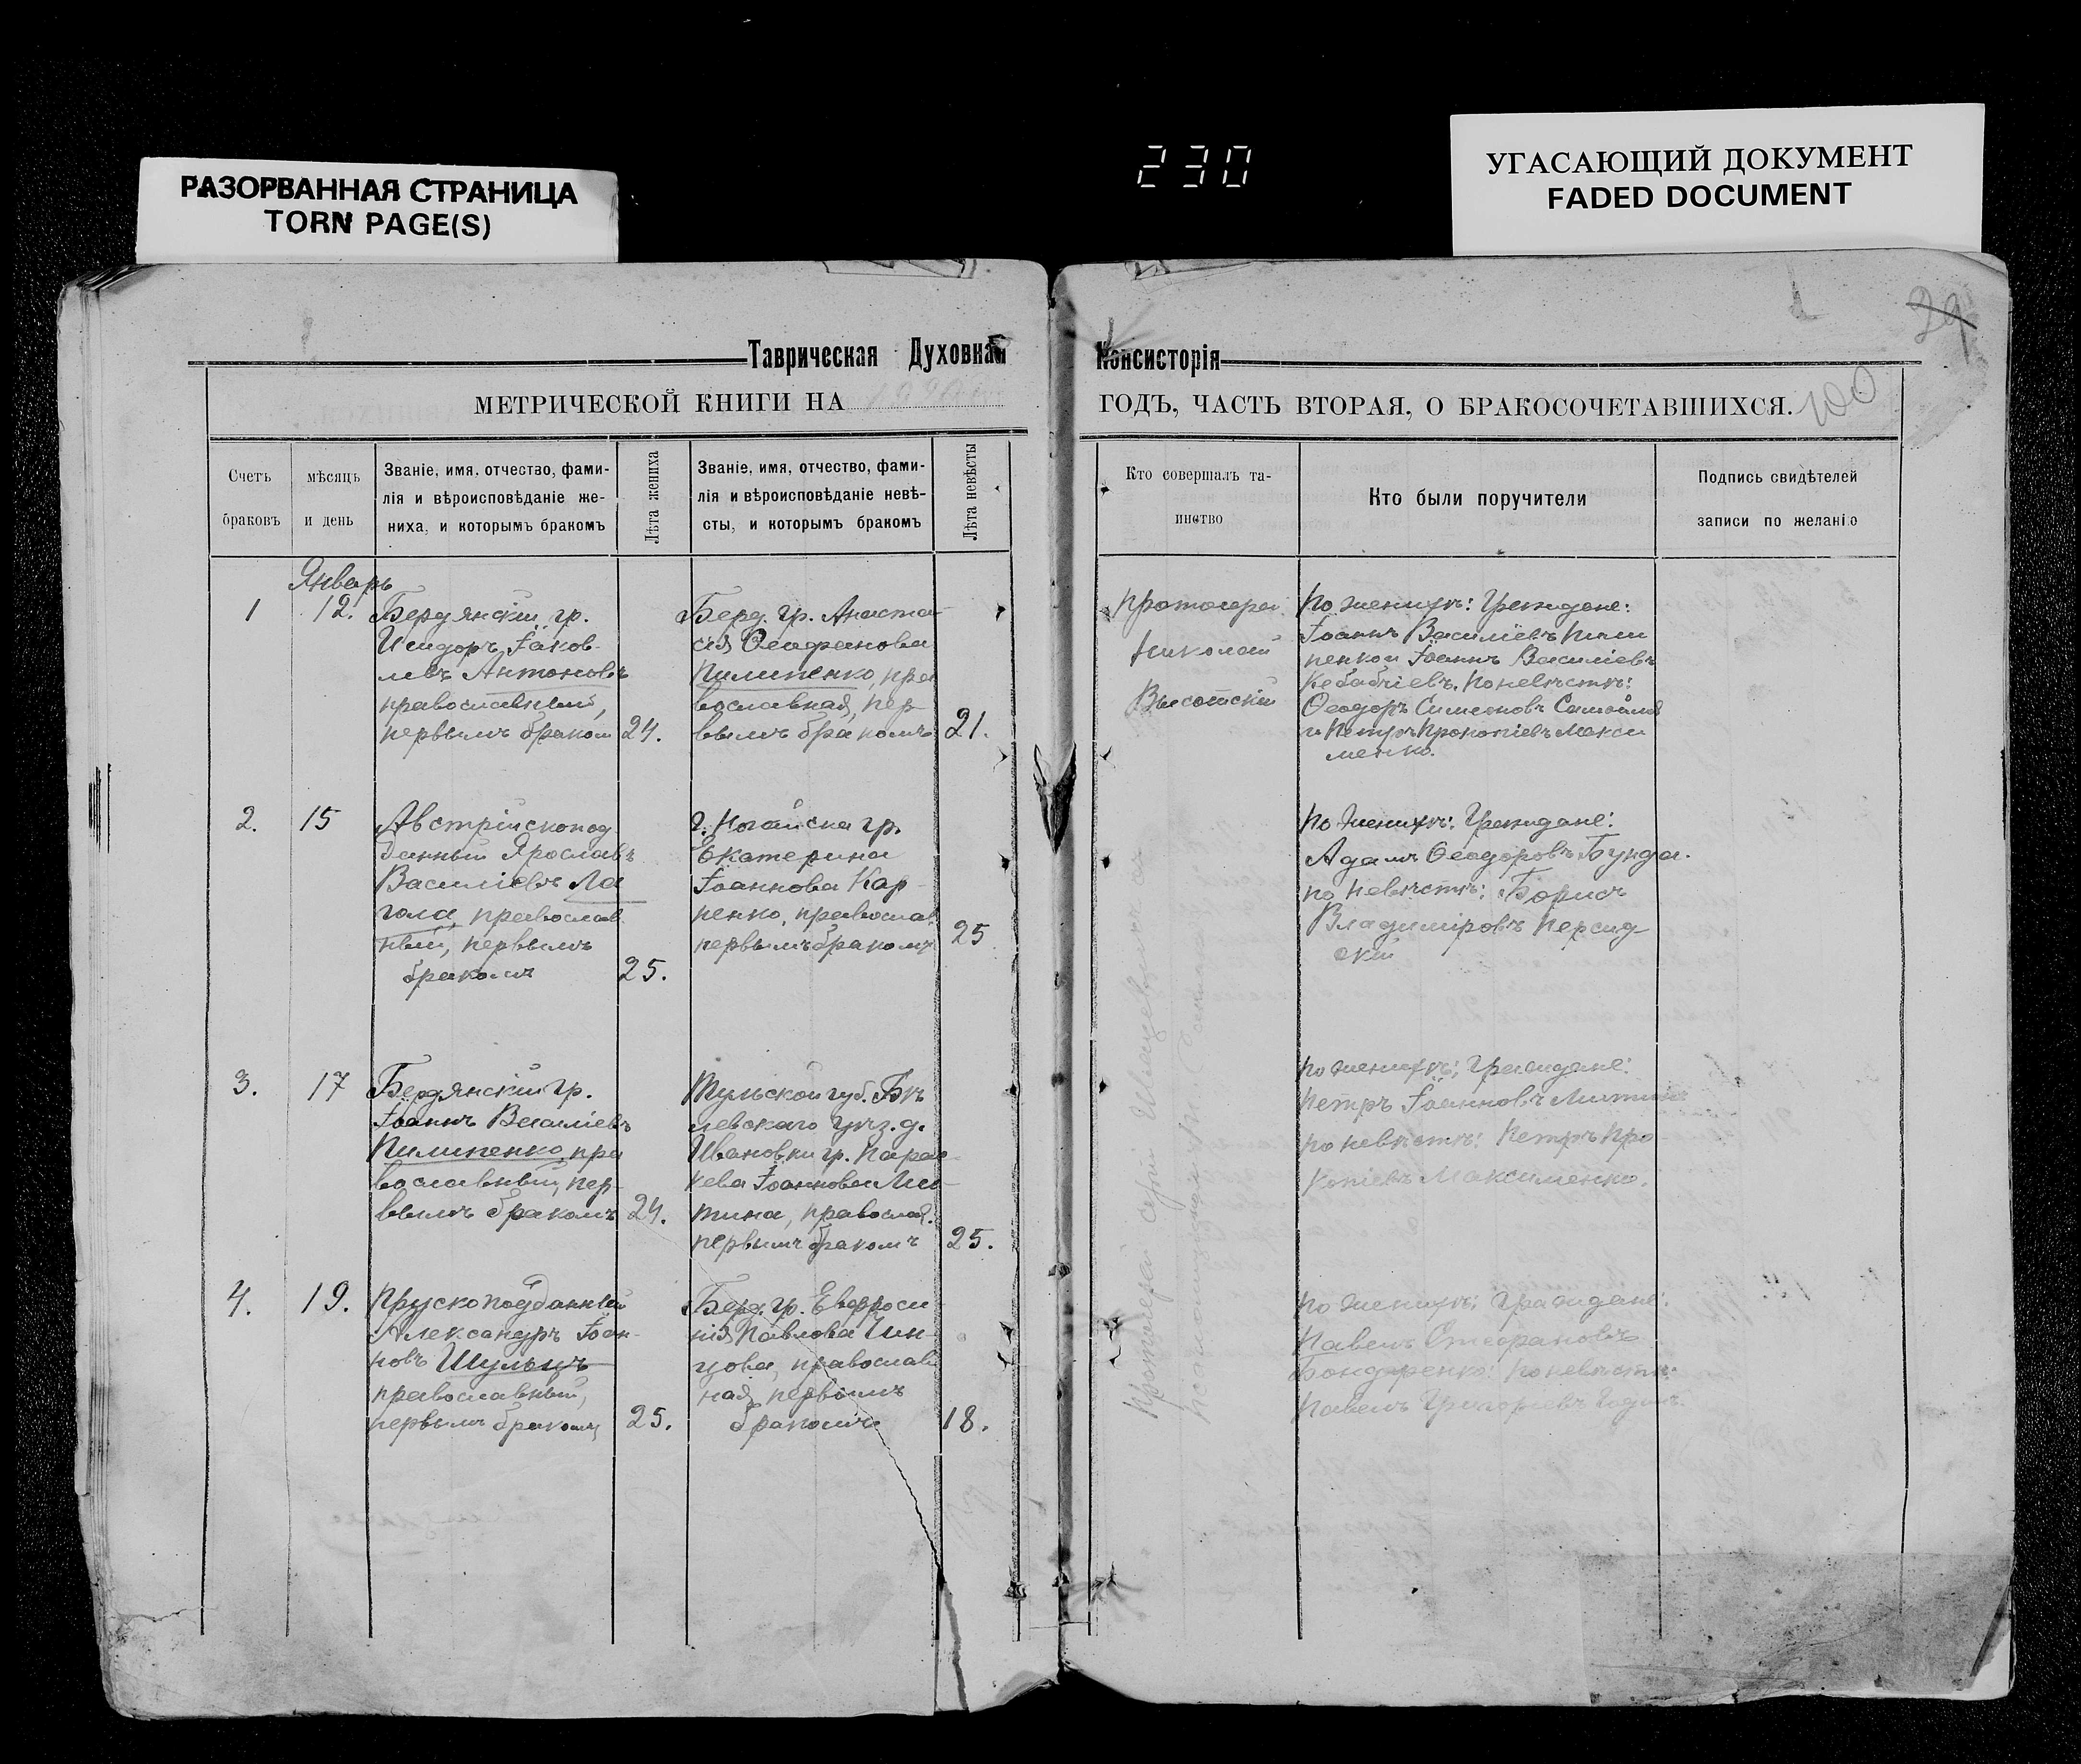 230
РАЗОРВАННАЯ СТРАНИЦА
TORN PAGE(S)
УГАСАЮЩИЙ ДОКУМЕНТ
FADED DOCUMENT
29
Таврическая Духовная Консисторія
МЕТРИЧЕСКОЙ КНИГИ НА ГОДЪ, ЧАСТЬ ВТОРАЯ, О БРАКОСОЧЕТАВШИХСЯ.
100
Счетъ
браковъ
мѣсяцъ
и день
Званіе, имя, отчество, фами-
лія и вѣроисповѣданіе же-
ниха, и которымъ бракомъ
Лѣта жениха
Званіе, имя, отчество, фами-
лія и вѣроисповѣданіе невѣ-
сты, и которымъ бракомъ
Лѣта невѣсты
Кто совершалъ та-
инство
Кто были поручители
Подпись свидѣтелей
записи по желанію
Январь
1
12.
Бердянскій гр.
Исидоръ Іаков-
левъ Антоновъ
православный,
первымъ браком
24.
Берд. гр. Анаста-
сія Ѳеофанова
Пилипенко, пра
вославная, пер-
вымъ бракомъ
21.
протоіерей
Николай
Высотскій
По женихѣ: Граждане:
Іоаннъ Василіевъ Пили
пенко и Іоаннъ Василіевъ
Кебабчіевъ. По невѣстѣ:
Ѳеодоръ Симеоновъ Самойлов
и Петръ Прокопіевъ Макси
менко.
2.
15
Австрійскопод
данный Ярославъ
Василіевъ Ла
гола, православ
ный, первымъ
бракомъ
25.
г. Ногайска гр.
Екатерина
Іоаннова Кар-
пенко, православ
первымъ бракомъ
25
По женихѣ: Граждане:
Адамъ Ѳеодоровъ Бунда.
по невѣстѣ: Борисъ
Владиміровъ Персид-
скій
3.
17
Бердянскій гр.
Іоаннъ Василіевъ
Пилипенко, пра
вославный, пер-
вымъ бракомъ
24.
Тульской губ. Бѣ
левскаго уѣз. д.
Ивановки гр. Парас-
кева Іоаннова Ми-
тина, православ.
первымъ бракомъ
25.
По женихѣ: Граждане:
Петръ Іоанновъ
по невѣстѣ: Петръ Про-
копіевъ Максименко.
4.
19.
Прускоподданный
Александръ Іоан-
новъ Шульцъ
православный,
первымъ бракомъ
25.
Берд. гр. Евфроси
нія Павлова Чин-
цова, православ
ная, первымъ
бракомъ
18.
По женихѣ: Граждане:
Павелъ Стефановъ
Бондаренко: По невѣстѣ:
Павелъ Григоріевъ
Протоіерей